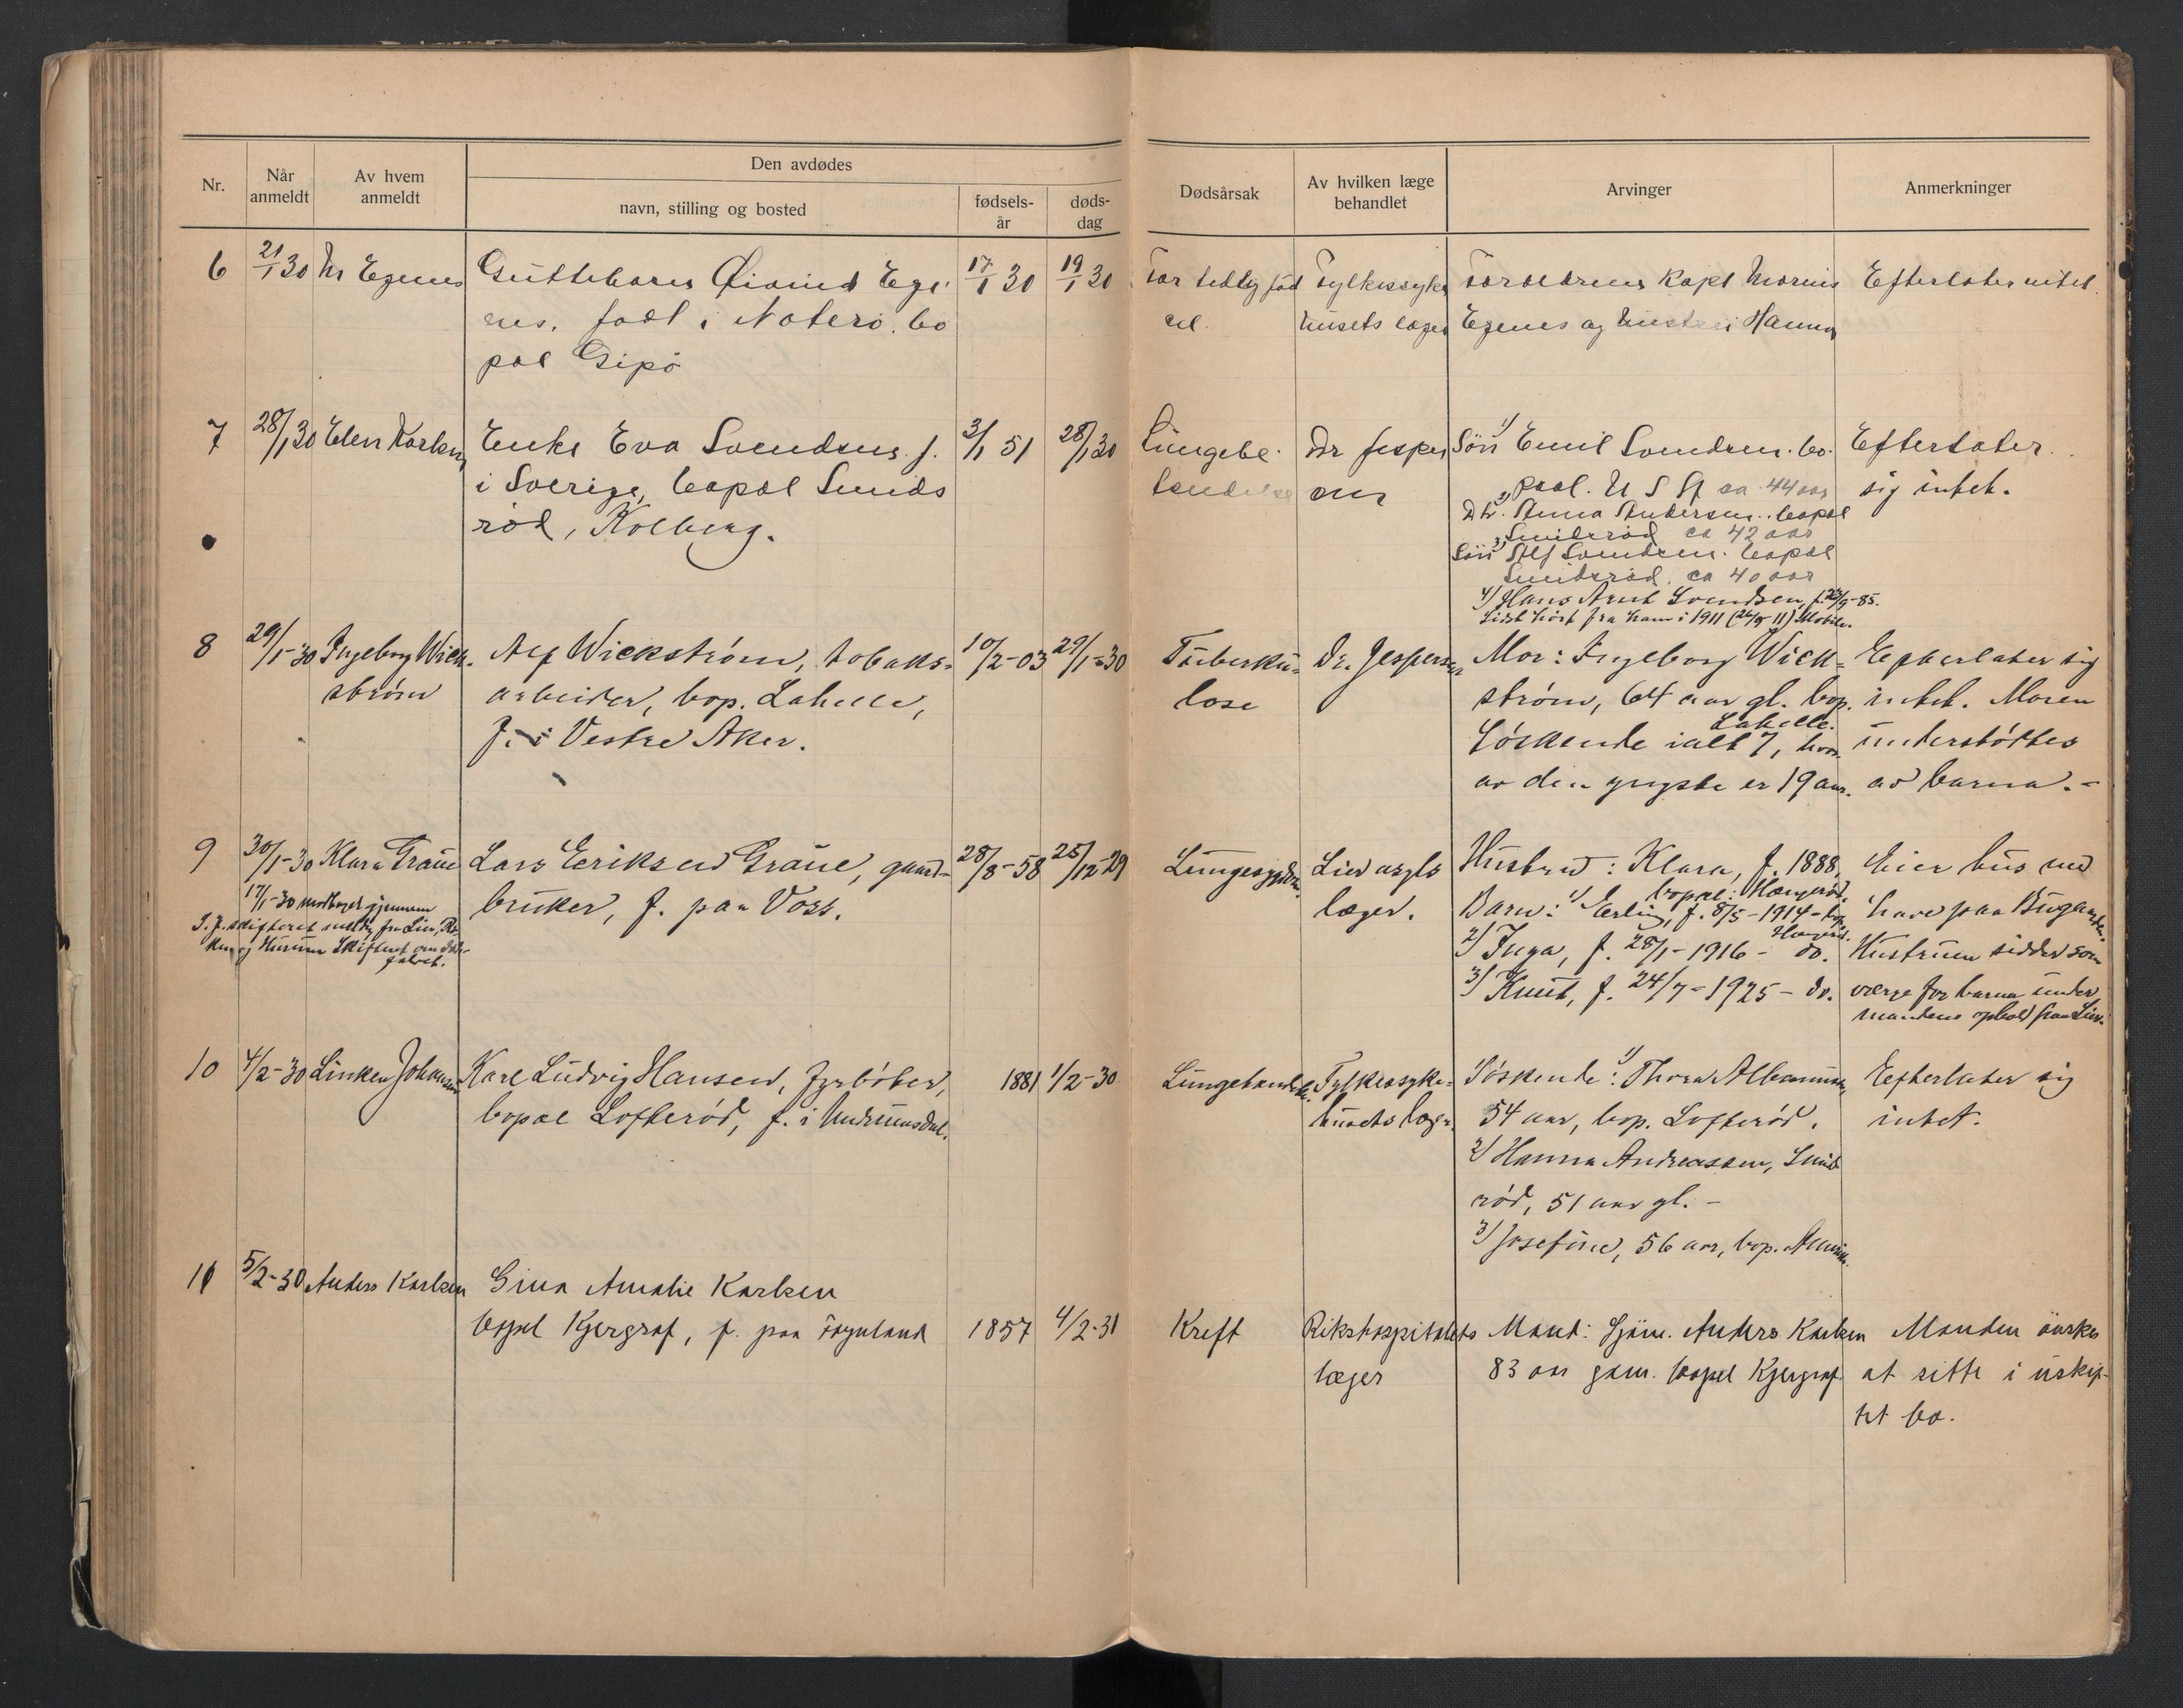 Nr.
Når
anmeldt
Av hvem
anmeldt
Den avdødes
navn, stilling og bosted
fødsels-
år
døds-
dag
Dødsårsak
Av hvilken læge
behandlet
Arvinger
Anmerkninger
6
21/1 30
Egenes
Guttebarn Øivind Ege-
nes, født i Nøterø, bo
pæl Gipø
17/1 30
19/1 30
For tidlig fød
sel.
Fylkessyke
husets læger
Forældrene Kapt
Egenes og hustru Hanna
Efterlater intet.
7
28/1 30
Elen Karlsen
Enke Eva Svendsen f.
i Sverige, bopæl Sunds
rød, Kolberg.
3/1 51
28/1 30
Lungebe-
tendelse
Dr Jespers
en
1) Søn Emil Svendsen. bo-
pæl. U S A ca 44 aar
2) Dtr. Anna Andersen. bopæl
Smidsrød ca 42 aar
3) Søn Alf Svendsen. bopæl
Smidsrød. ca 40 aar
4) Hans Arnt Svendsen, f. 23/9-85.
Sidst hört fra ham i 1911 (24/8 11) Mobile.
Efterlater
sig intet.
8
29/1-30
Ingeborg Wick-
strøm
Alf Wickstrøm, tobaks-
arbeider, bop. Lahelle,
f. i Vestre Aker.
10/2-03
29/1-30
Tuberku-
lose
Dr. Jespersen
Mor: Ingeborg Wick-
strøm, 64 aar gl. bop.
Lahelle.
Søskende ialt 7, hvor-
av den yngste er 19 aar.
Efterlater sig
intet. Moren
understøttes
av barna.-
9
30/1-30
Klara Graue
17/1-30 mottaget gjennem
S. J. skifteret melding fra Lier, Rø-
ken og Hurum Skifteret om døds-
faldet.
Lars Eriksen Graue, gaard-
bruker, f. paa Voss.
28/8-58
25/12-29
Lungesygdom
Lier asyls
læger.
Hustru: Klara, f. 1888,
bopæl: Haugerød.
Barn: 1) Erling, f. 8/5-1914- bop.
Haugerød.
2) Inga, f. 28/1-1916- do.
3) Knut, f. 24/7-1925- do.
Eier hus med
have paa Bugaarden.
Hustruen sidder som
verge for barna under
mandens ophold paa Lier.
10
4/2-30
Linken Johansen
Karl Ludvig Hansen, fyrbøter,
bopæl Lofterød, f. i Undrumsdal.
1881
1/2-30
Lungebetendelse.
Fylkessyke-
husets læger.
Søskende: 1) Thora Albertinsen,
54 aar, bop. Lofterød.
2) Hanna Andreassen, Smids
rød, 51 aar gl. -
3) Josefine, 56 aar, bop.
Efterlater sig
intet.
11
5/2-30
Anders Karlsen
Gina Amalie Karlsen
bopel Kjørgraf, f. paa Føynland
1857
4/2-31
Kreft
Rikshospitalets
læger
Mand: Sjøm. Anders Karlsen
83 aar gam. bopel Kjørgraf.
Manden önsker
at sitte i uskif-
tet bo.